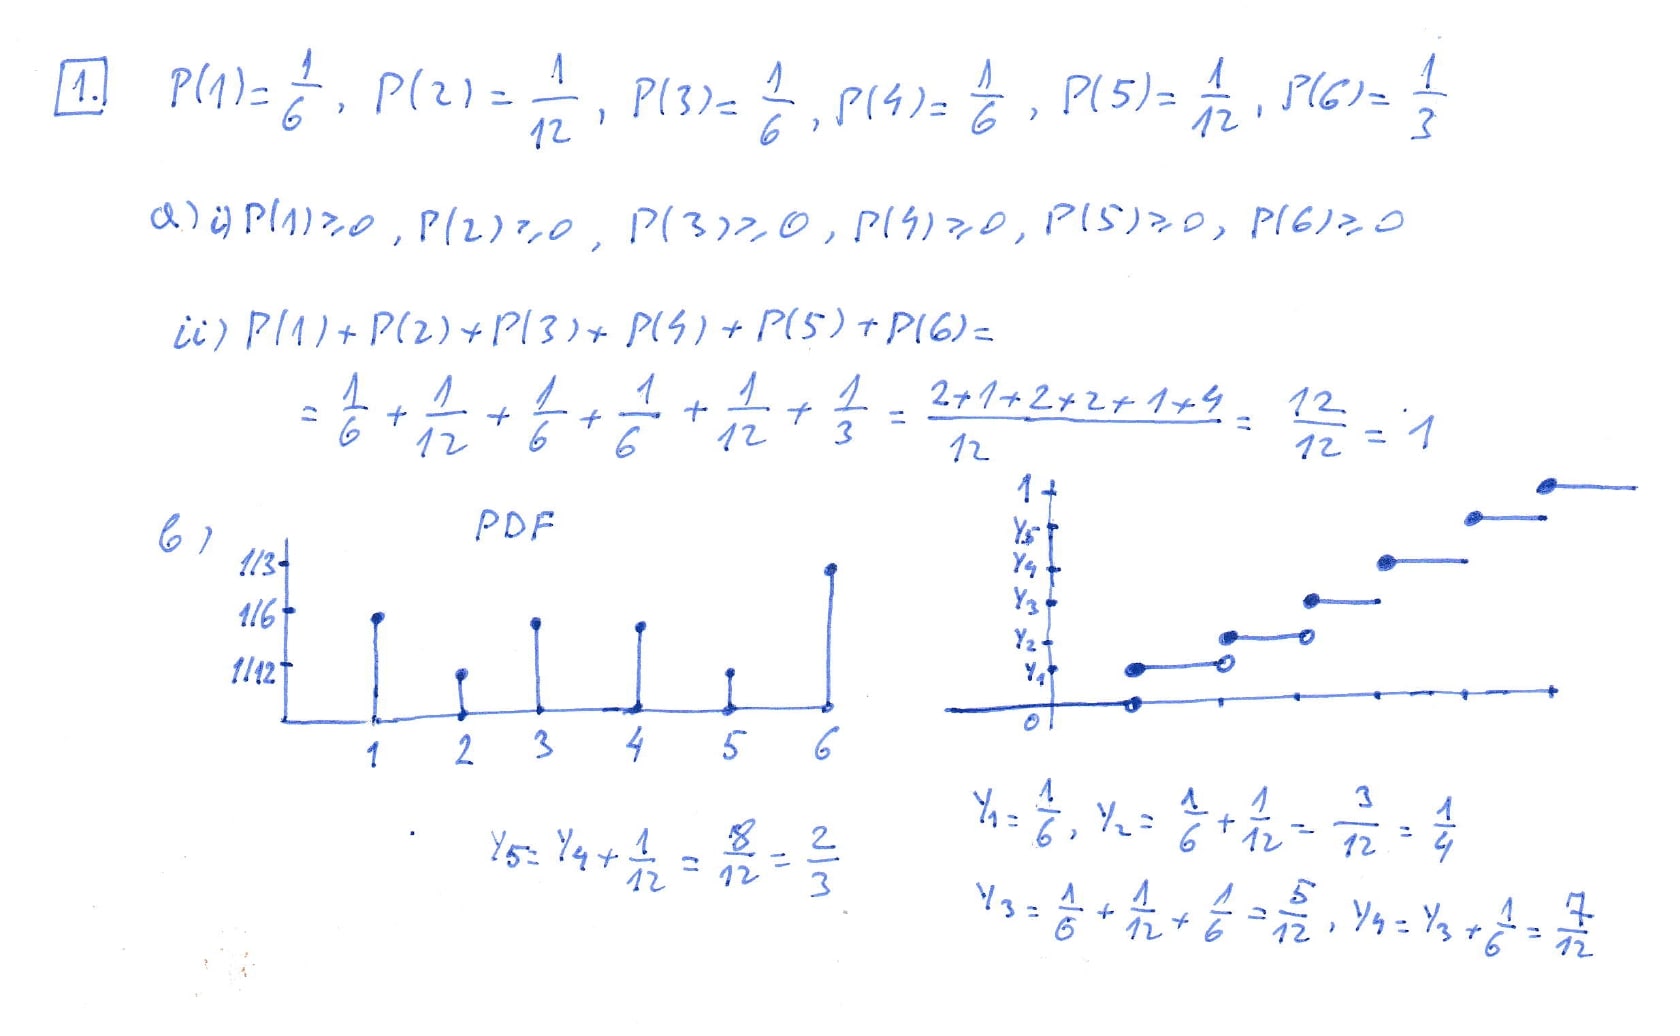 1. P(1)=1/6, P(2)=1/12, P(3)=1/6, P(4)=1/6, P(5)=1/12, P(6)=1/3
a) i) P(1)≥0, P(2)≥0, P(3)≥0, P(4)≥0, P(5)≥0, P(6)≥0
ii) P(1)+P(2)+P(3)+P(4)+P(5)+P(6)=
= 1/6 + 1/12 + 1/6 + 1/6 + 1/12 + 1/3 = (2+1+2+2+1+4)/12 = 12/12 = 1
b) PDF
1/3
1/6
1/12
1 2 3 4 5 6
1
Y5
Y4
Y3
Y2
Y1
0
Y1=1/6, Y2=1/6+1/12=3/12=1/4
Y3=1/6+1/12+1/6=5/12, Y4=Y3+1/6=7/12
Y5=Y4+1/12=8/12=2/3